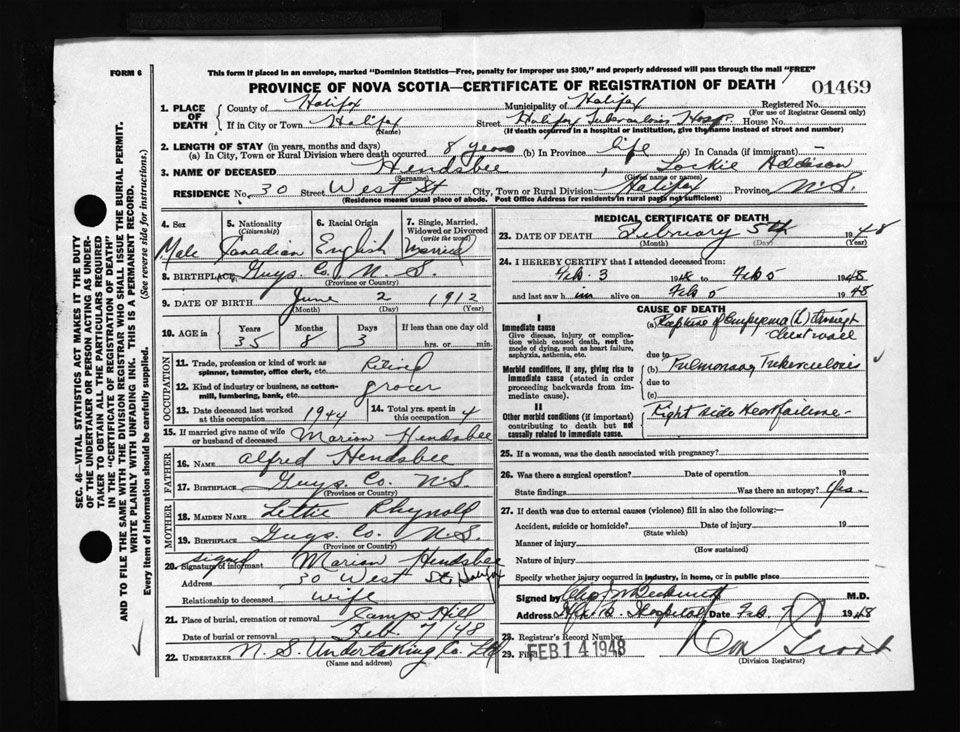 FORM 6
This form if placed in an envelope, marked "Dominion Statistics—Free, penalty for improper use $300," and properly addressed will pass through the mail "FREE"
PROVINCE OF NOVA SCOTIA—CERTIFICATE OF REGISTRATION OF DEATH
01469
1. PLACE OF DEATH
County of Halifax Municipality of Halifax Registered No.
(For use of Registrar General only)
If in City or Town Halifax Street Halifax Tuberculosis Hosp. House No.
(Name) (If death occurred in a hospital or institution, give the name instead of street and number)
2. LENGTH OF STAY (in years, months and days)
(a) In City, Town or Rural Division where death occurred 8 years (b) In Province life (c) In Canada (if immigrant) —
3. NAME OF DECEASED Hendsbee, Lockie Addison
(Surname) (Given name or names)
RESIDENCE No. 30 Street West St City, Town or Rural Division Halifax Province N.S.
(Residence means usual place of abode. Post Office Address for residents in rural parts not sufficient)
4. Sex 5. Nationality (Citizenship) 6. Racial Origin 7. Single, Married, Widowed or Divorced (write the word)
Male Canadian English Married
8. BIRTHPLACE Guys. Co. N.S.
(Province or Country)
9. DATE OF BIRTH June 2 1912
(Month) (Day) (Year)
10. AGE in Years Months Days If less than one day old
35 8 3 hrs. or min.
OCCUPATION
11. Trade, profession or kind of work as spinner, teamster, office clerk, etc. Retired
12. Kind of industry or business, as cotton-mill, lumbering, bank, etc. grocer
13. Date deceased last worked at this occupation 1944 14. Total yrs. spent in this occupation 4
15. If married give name of wife or husband of deceased Marion Hendsbee
FATHER
16. NAME Alfred Hendsbee
17. BIRTHPLACE Guys. Co. N.S.
(Province or Country)
MOTHER
18. MAIDEN NAME Lettie Rhynold
19. BIRTHPLACE Guys. Co. N.S.
(Province or Country)
signed
20. Signature of informant Marion Hendsbee
Address 30 West St. Halifax
Relationship to deceased wife
21. Place of burial, cremation or removal Camp Hill
Date of burial or removal Feb. 7/48
22. UNDERTAKER N.S. Undertaking Co. Ltd
(Name and address)
MEDICAL CERTIFICATE OF DEATH
23. DATE OF DEATH February 5th 1948
(Month) (Day) (Year)
24. I HEREBY CERTIFY that I attended deceased from:
Feb. 3 1948 to Feb 5 1948
and last saw him alive on Feb 5 1948
CAUSE OF DEATH
I
Immediate cause
Give disease, injury or complication which caused death, not the mode of dying, such as heart failure, asphyxia, asthenia, etc.
(a) Rupture of Empyema (L) through chest wall
due to
Morbid conditions, if any, giving rise to immediate cause (stated in order proceeding backwards from immediate cause).
(b) Pulmonary Tuberculosis
due to
(c)
II
Other morbid conditions (if important) contributing to death but not causally related to immediate cause.
Right side Heart failure
25. If a woman, was the death associated with pregnancy?
26. Was there a surgical operation? Date of operation 19
State findings Was there an autopsy? Yes.
27. If death was due to external causes (violence) fill in also the following:—
Accident, suicide or homicide? Date of injury 19
(State which)
Manner of injury
(How sustained)
Nature of injury
Specify whether injury occurred in industry, in home, or in public place
Signed by M.D.
Address Hospital Date Feb. 1948
28. Registrar's Record Number
29. Filed FEB 14 1948
(Division Registrar)
SEC. 46—VITAL STATISTICS ACT MAKES IT THE DUTY
OF THE UNDERTAKER OR PERSON ACTING AS UNDER-
TAKER TO OBTAIN ALL THE PARTICULARS REQUIRED
IN THE "CERTIFICATE OF REGISTRATION OF DEATH"
AND TO FILE THE SAME WITH THE DIVISION REGISTRAR WHO SHALL ISSUE THE BURIAL PERMIT.
WRITE PLAINLY WITH UNFADING INK. THIS IS A PERMANENT RECORD.
Every item of information should be carefully supplied. (See reverse side for instructions.)